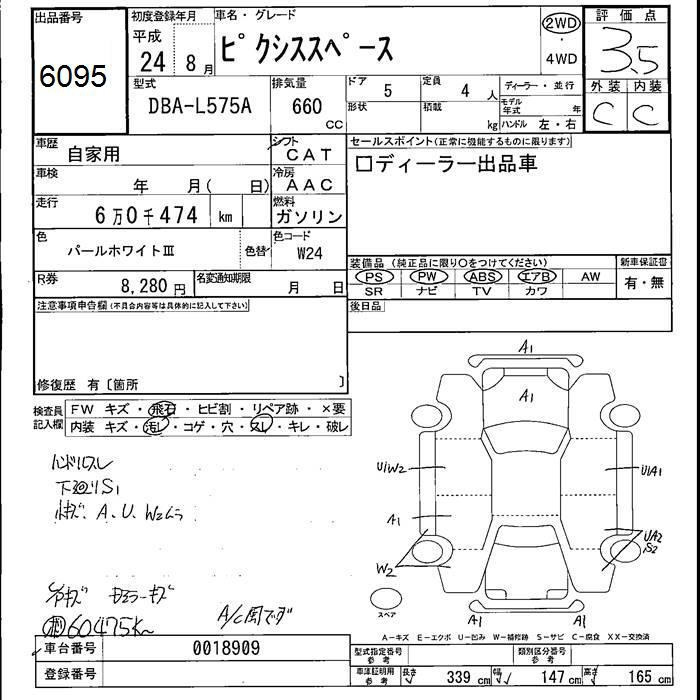 出品番号 初度登録年月 車名・グレード 2WD 評価点
6095 平成 24 8月 ピクシススペース 4WD 3.5
型式 DBA-L575A 排気量 660 CC ドア 5 形状 定員 4人 積載 kg ディーラー・並行 モデル年式 年 ハンドル 左・右 外装 内装 C C
車歴 自家用 シフト CAT セールスポイント(正常に機能するものに限ります)
車検 年 月( 日) 冷房 AAC 口ディーラー出品車
走行 6万0千474 km 燃料 ガソリン
色 パールホワイトⅢ 色替 色コード W24
装備品 (純正品に限り○をつけてください) 新車保証書
R券 8,280円 名変通知期限 月 日 PS PW ABS エアB AW 有・無
SR ナビ TV カワ
注意事項申告欄(不具合内容等は具体的に記入して下さい) 後日品
修復歴 有〔箇所 〕
検査員記入欄 FW キズ・飛石・ヒビ割・リペア跡・×要
内装 キズ・汚れ・コゲ・穴・スレ・キレ・破レ
A1
A1
ハンドルスレ
U1W2 U1A1
下廻りS1
A、U、W2ムラ
A1 UA2
S2
W2
スペア
A/C
60475K
A1 A1
A-キズ E-エクボ U-凹み W-補修跡 S-サビ C-腐食 XX-交換済
車台番号 0018909 型式指定番号 参考 類別区分番号 参考
登録番号 車庫証明用 参考 長さ 339 cm 幅 147 cm 高さ 165 cm